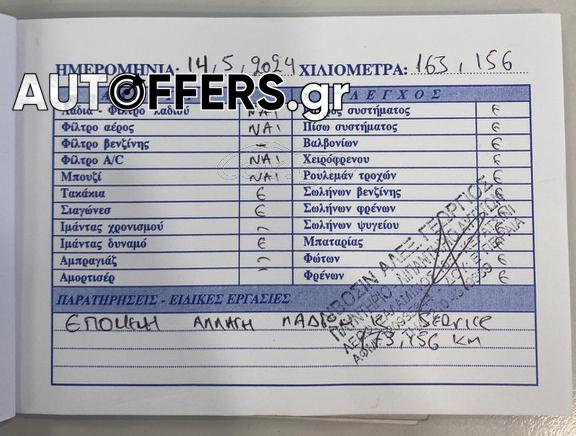 ΗΜΕΡΟΜΗΝΙΑ: 14, 5, 2024 ΧΙΛΙΟΜΕΤΡΑ: 163, 156
AUTOFFERS.gr
Λάδια - Φίλτρο λαδιού ΝΑΙ συστήματος ε
Φίλτρο αέρος ΝΑΙ Πίσω συστήματος ε
Φίλτρο βενζίνης – Βαλβονίων ε
Φίλτρο A/C ΝΑΙ Χειρόφρενου ε
Μπουζί ΝΑΙ Ρουλεμάν τροχών ε
Τακάκια ε Σωλήνων βενζίνης
Σιαγώνεσ ε Σωλήνων φρένων
Ιμάντας χρονισμού Σωλήνων ψυγείου
Ιμάντας δυναμό ε Μπαταρίας
Αμπραγιάζ Φώτων ε
Αμορτισέρ Φρένων ε
ΠΑΡΑΤΗΡΗΣΕΙΣ - ΕΙΔΙΚΕΣ ΕΡΓΑΣΙΕΣ
ΕΠΟΜΕΝΗ ΑΛΛΑΓΗ Service
173,156 Km